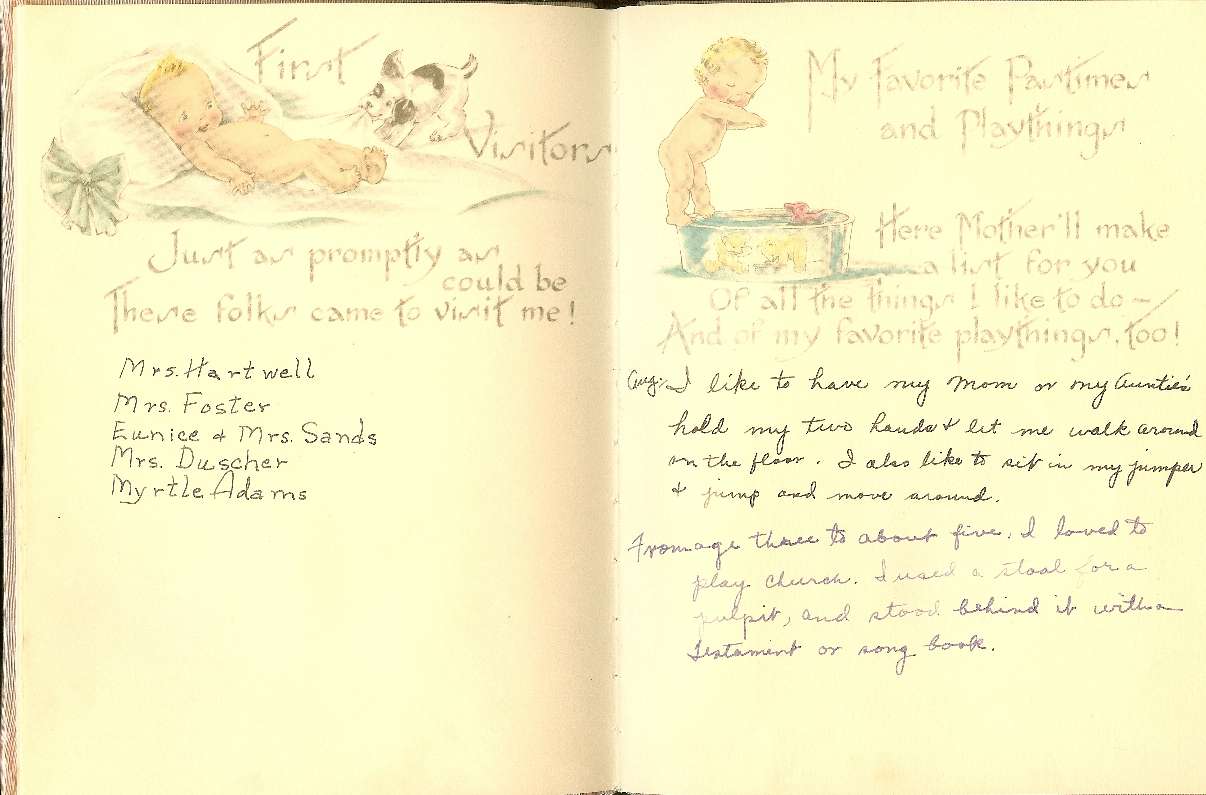 First
Visitors
Just as promptly as
could be
These folks came to visit me!
Mrs. Hartwell
Mrs. Foster
Eunice & Mrs. Sands
Mrs. Duscher
Myrtle Adams
My Favorite Pastimes
and Playthings
Here Mother'll make
a list for you
Of all the things I like to do~
And of my favorite playthings, too!
Aug: I like to have my Mom or my Auntie's
hold my two hands & let me walk around
on the floor. I also like to sit in my jumper
& jump and move around.
From age three to about five, I loved to
play church. I used a stool for a
pulpit, and stood behind it with a
Testament or song book.